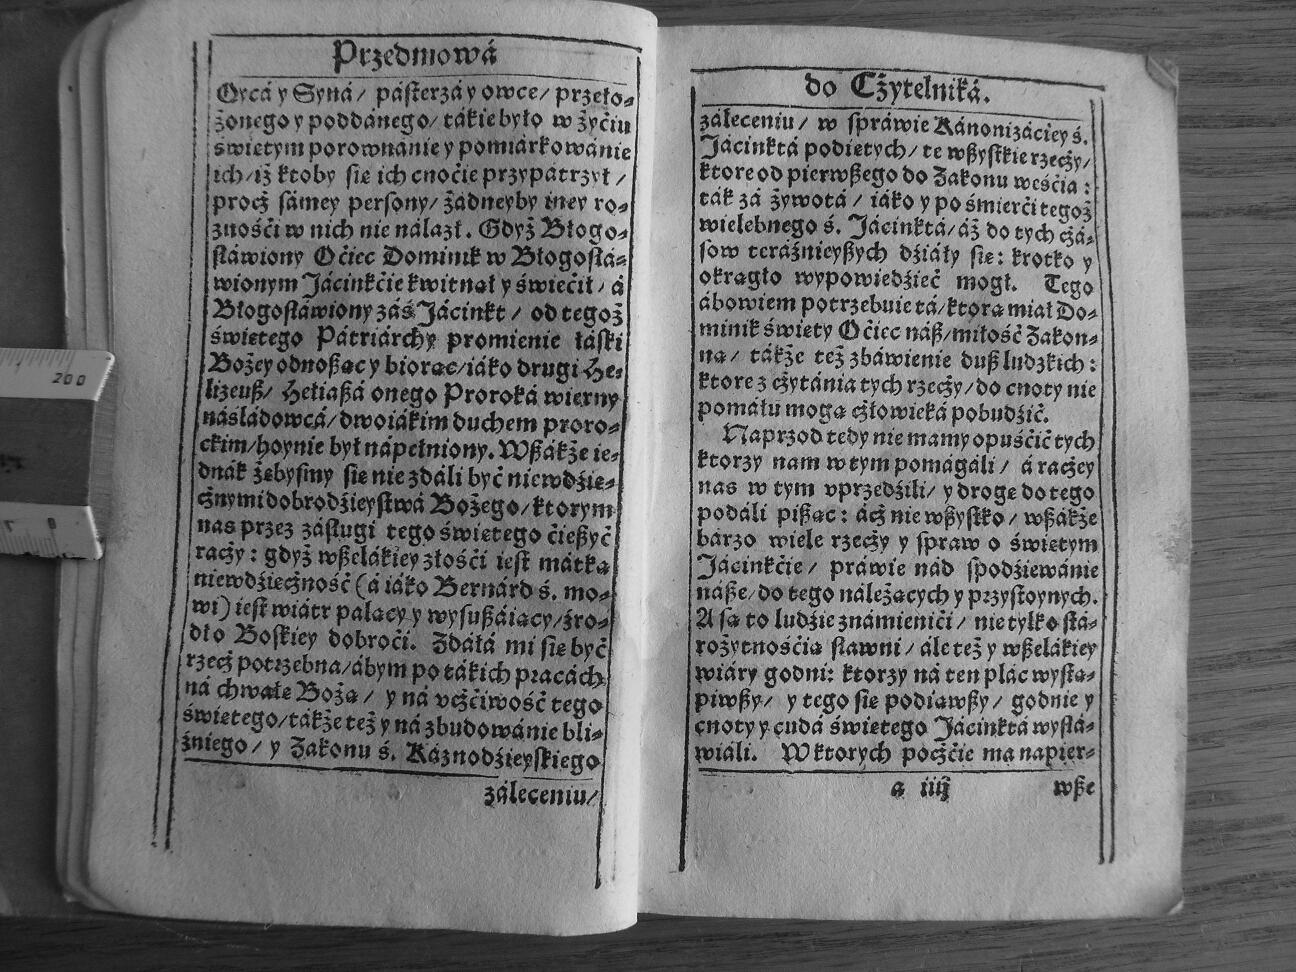 Przedmowá
Oycá y Syná / pásterzá y owce / przeło-
żonego y poddánego / tákie było w żyćiu
świętym porownánie y pomiárkowánie
ich / iż ktoby się ich cnoćie przypátrzył /
procż sámey persony / żadneyby iney ro-
znośći w nich nie nálazł. Gdyż Błogo-
słáwiony Oćiec Dominik w Błogosłá-
wionym Jácinkćie kwitnął y świećił / á
Błogosłáwiony záś Jácinkt / od tegoż
świętego Pátriárchy promienie łáski
Bożey odnoßąc y biorąc / iáko drugi He-
lizeuß / Heliaßá onego Proroká wierny
násládowcá / dwoiákim duchem proro-
ckim / hoynie był nápełniony. Wßákże ie-
dnák żebysmy się nie zdáli być niewdźie-
cżnymi dobrodźieystwá Bożego / ktorym
nas przez zásługi tego świętego ćießyć
racży : gdyż wßelákiey złośći iest mátką
niewdźiecżność (á iáko Bernárd ś. mo-
wi) iest wiátr palący y wysußáiący / źro-
dło Boskiey dobroći. Zdáłá mi się być
rzecż potrzebna / ábym po tákich pracách
ná chwałę Bożą / y ná vcżćiwość tego
świętego / tákże też y ná zbudowánie bli-
źniego / y Zakonu ś. Káznodźieyskiego
záleceniu /
do Cżytelniká.
záleceniu / w spráwie Kánonizáciey ś.
Jácinktá podiętych / te wßystkie rzecży /
ktore od pierwßego do Zakonu weśćia :
ták zá żywotá / iáko y po śmierći tegoż
wielebnego ś. Jácinktá / áż do tych cżá-
sow teráźnieyßych dźiały się : krotko y
okrągło wypowiedźieć mogł. Tego
ábowiem potrzebuie tá / ktorą miał Do-
minik święty Oćiec náß / miłość Zakon-
na / tákże też zbáwienie duß ludzkich :
ktore z cżytánia tych rzecży / do cnoty nie
pomáłu mogą cżłowieká pobudźić.
Naprzod tedy nie mamy opuśćić tych
ktorzy nam w tym pomágáli / á racżey
nas w tym vprzedźili / y drogę do tego
podáli pißąc : ácż nie wßystko / wßákże
bárzo wiele rzecży y spraw o świętym
Jácinkćie / práwie nád spodźiewánie
náße / do tego náleżących y przystoynych.
A są to ludźie známienići / nie tylko stá-
rożytnośćią sławni / ále też y wßelákiey
wiáry godni: ktorzy ná ten plác wystą-
piwßy / y tego się podiąwßy / godnie y
cnoty y cudá świętego Jácinktá wysłá-
wiáli. W ktorych pocżćie ma napier-
a iiij
wße